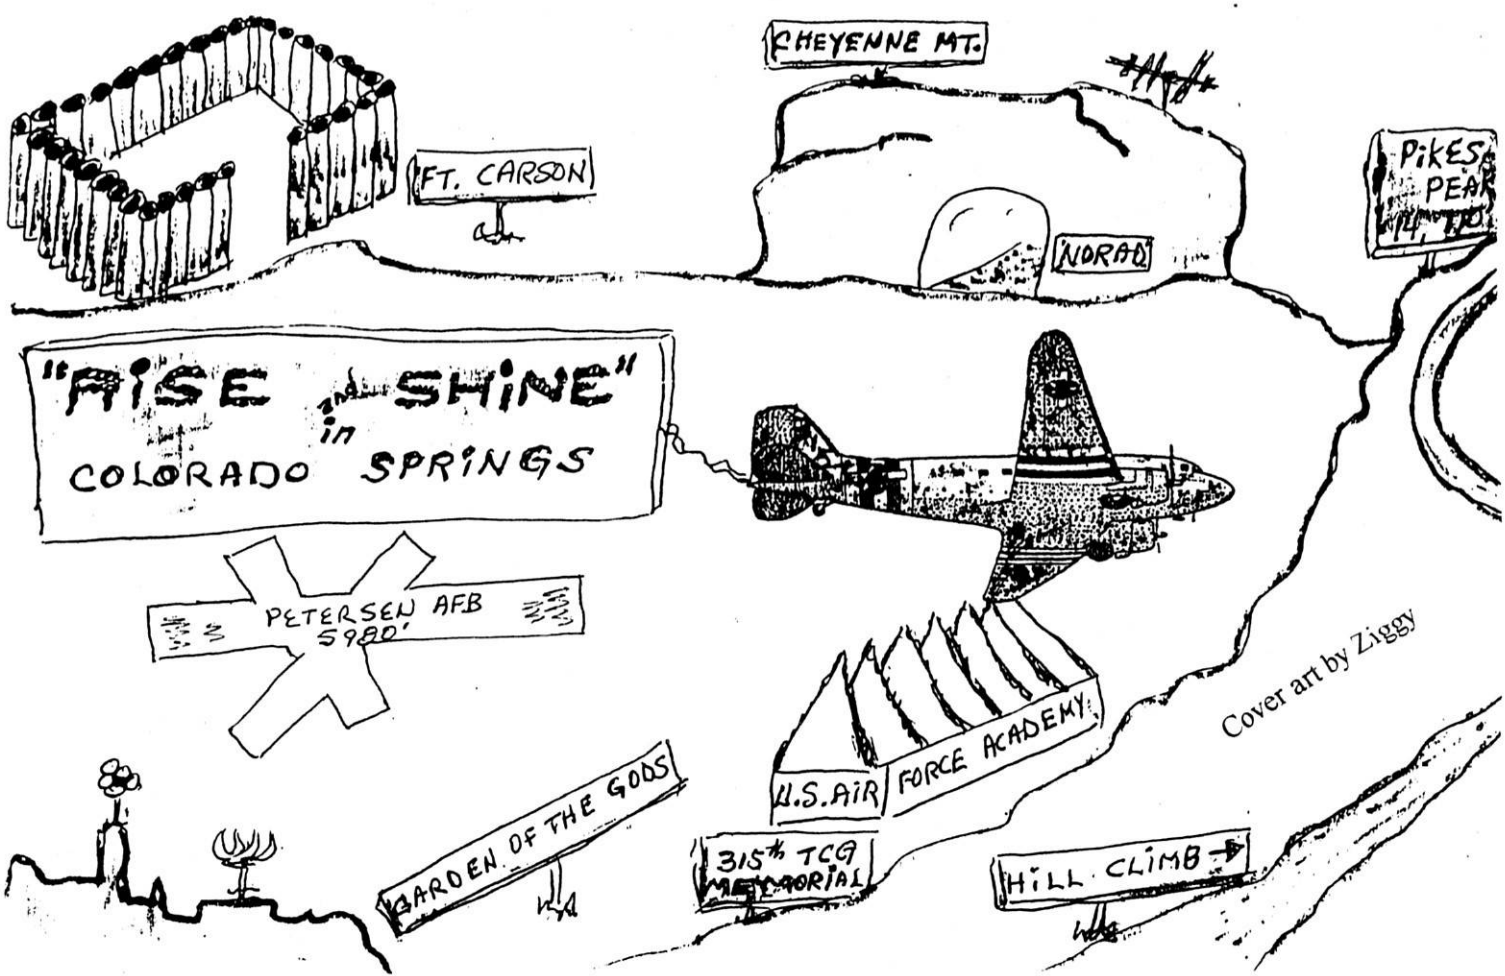 CHEYENNE MT.
FT. CARSON
PIKES
PEAK
14, 110
NORAD
"RISE and SHINE"
in
COLORADO SPRINGS
PETERSEN AFB
5980'
Cover art by Ziggy
U.S. AIR FORCE ACADEMY
GARDEN OF THE GODS
315th TCG
MEMORIAL
HILL CLIMB